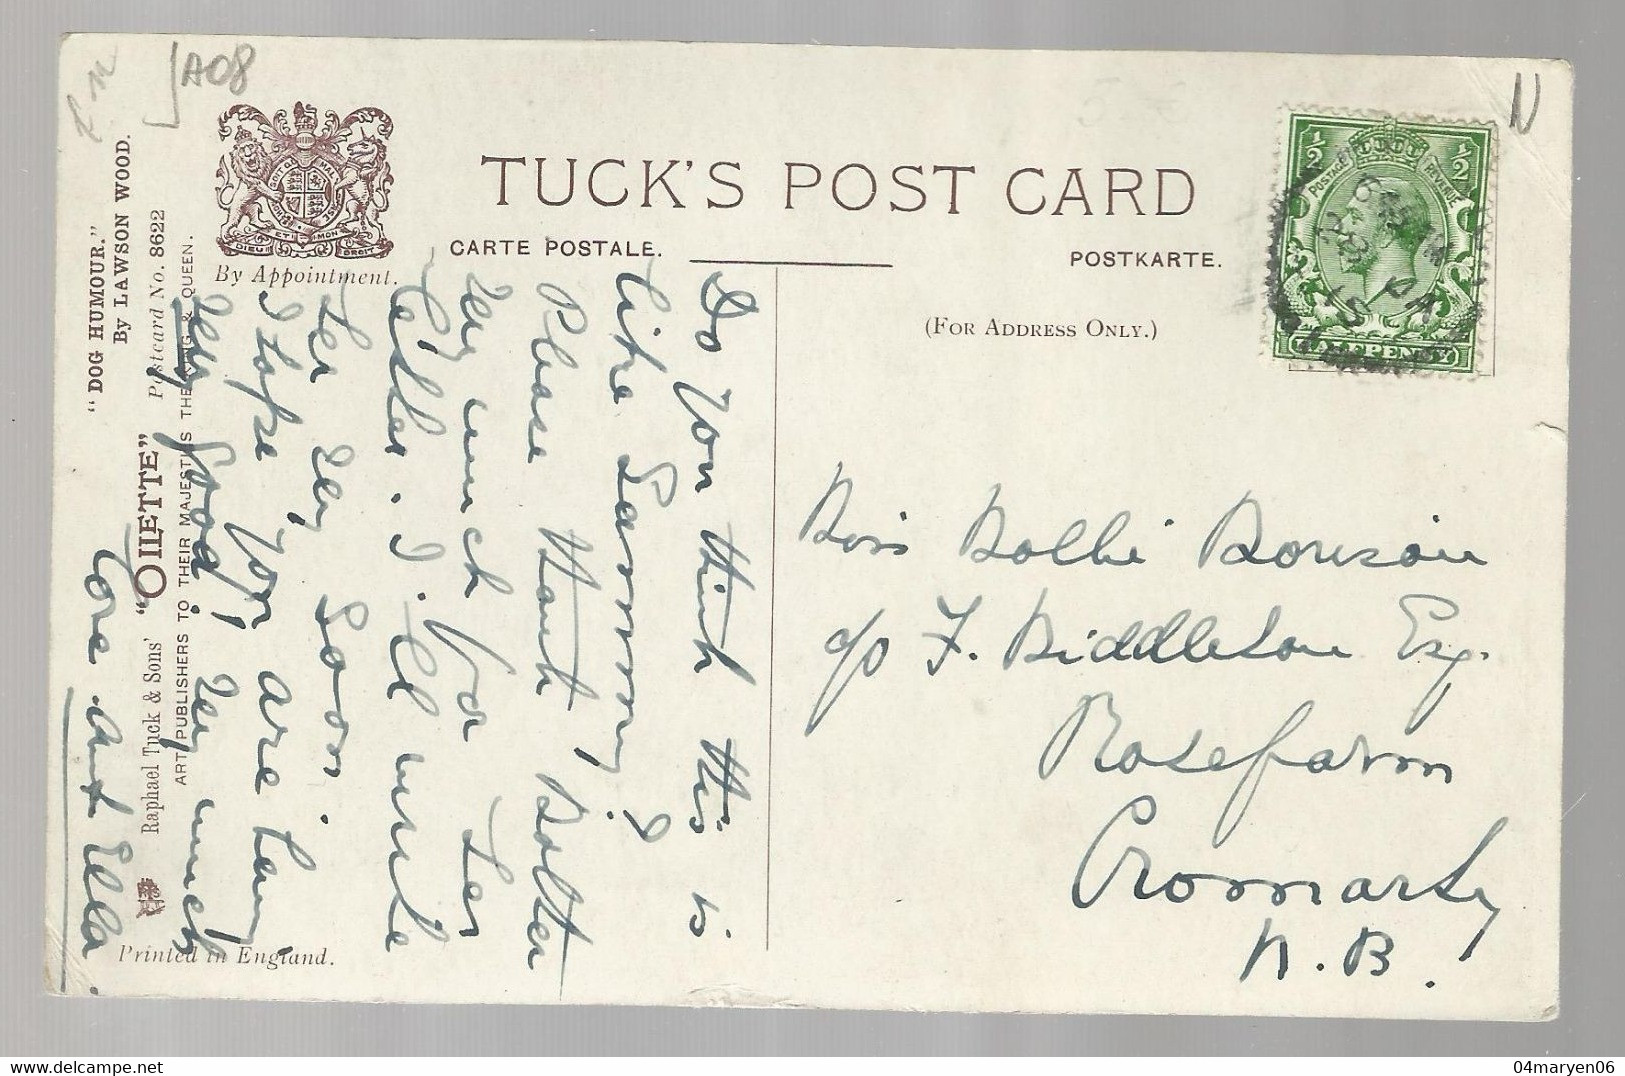 A08
N
TUCK'S POST CARD
CARTE POSTALE.
POSTKARTE.
By Appointment.
(FOR ADDRESS ONLY.)
½ ½
POSTAGE REVENUE
HALFPENNY
"DOG HUMOUR."
By LAWSON WOOD.
Raphael Tuck & Sons' "OILETTE" Postcard No. 8622
ART PUBLISHERS TO THEIR MAJESTIES THE KING & QUEEN.
Printed in England.
Do you think this is
like Sammy? I
Please thank
very much for her
letter. I'll write
her very soon.
I hope you are being
very good; very much
Love Aunt Ella.
Miss
c/o F. Biddleton Esq.
Rosefarm
Cromarty
N.B.
04maryen06